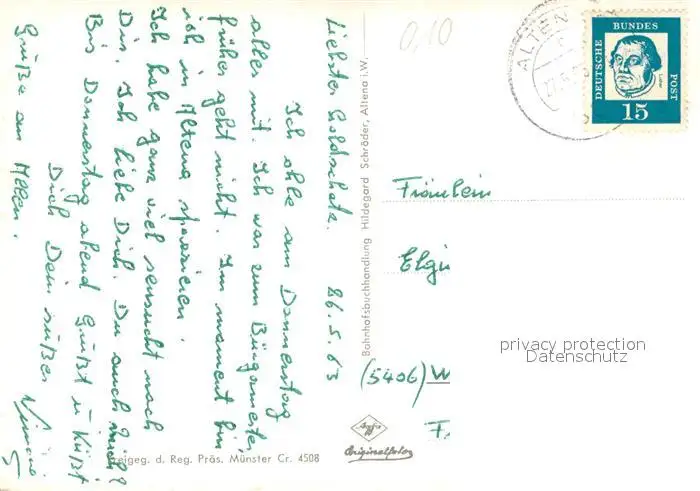 Liebster Goldschatz. 26.5.63
Ich ohle am Donnerstag
alles mit. Ich war zum Bürgermeister,
früher geht nicht. Im moment bin
ich in Altena spazieren.
Ich habe ganz viel sensucht nach
Dir. Ich liebe Dich. Du auch mich?
Bis Donnerstag abend Grüßt u Küßt
Dich Dein süßer
Grüße an Allen.
0,10
ALTEN
DEUTSCHE BUNDES POST
Luther
15
Fräulein
Elgi
(5406) W
F.
privacy protection
Datenschutz
Bahnhofsbuchhandlung Hildegard Schröder, Altena i.W.
Agfa
Originalfoto
eigeg. d. Reg. Präs. Münster Cr. 4508